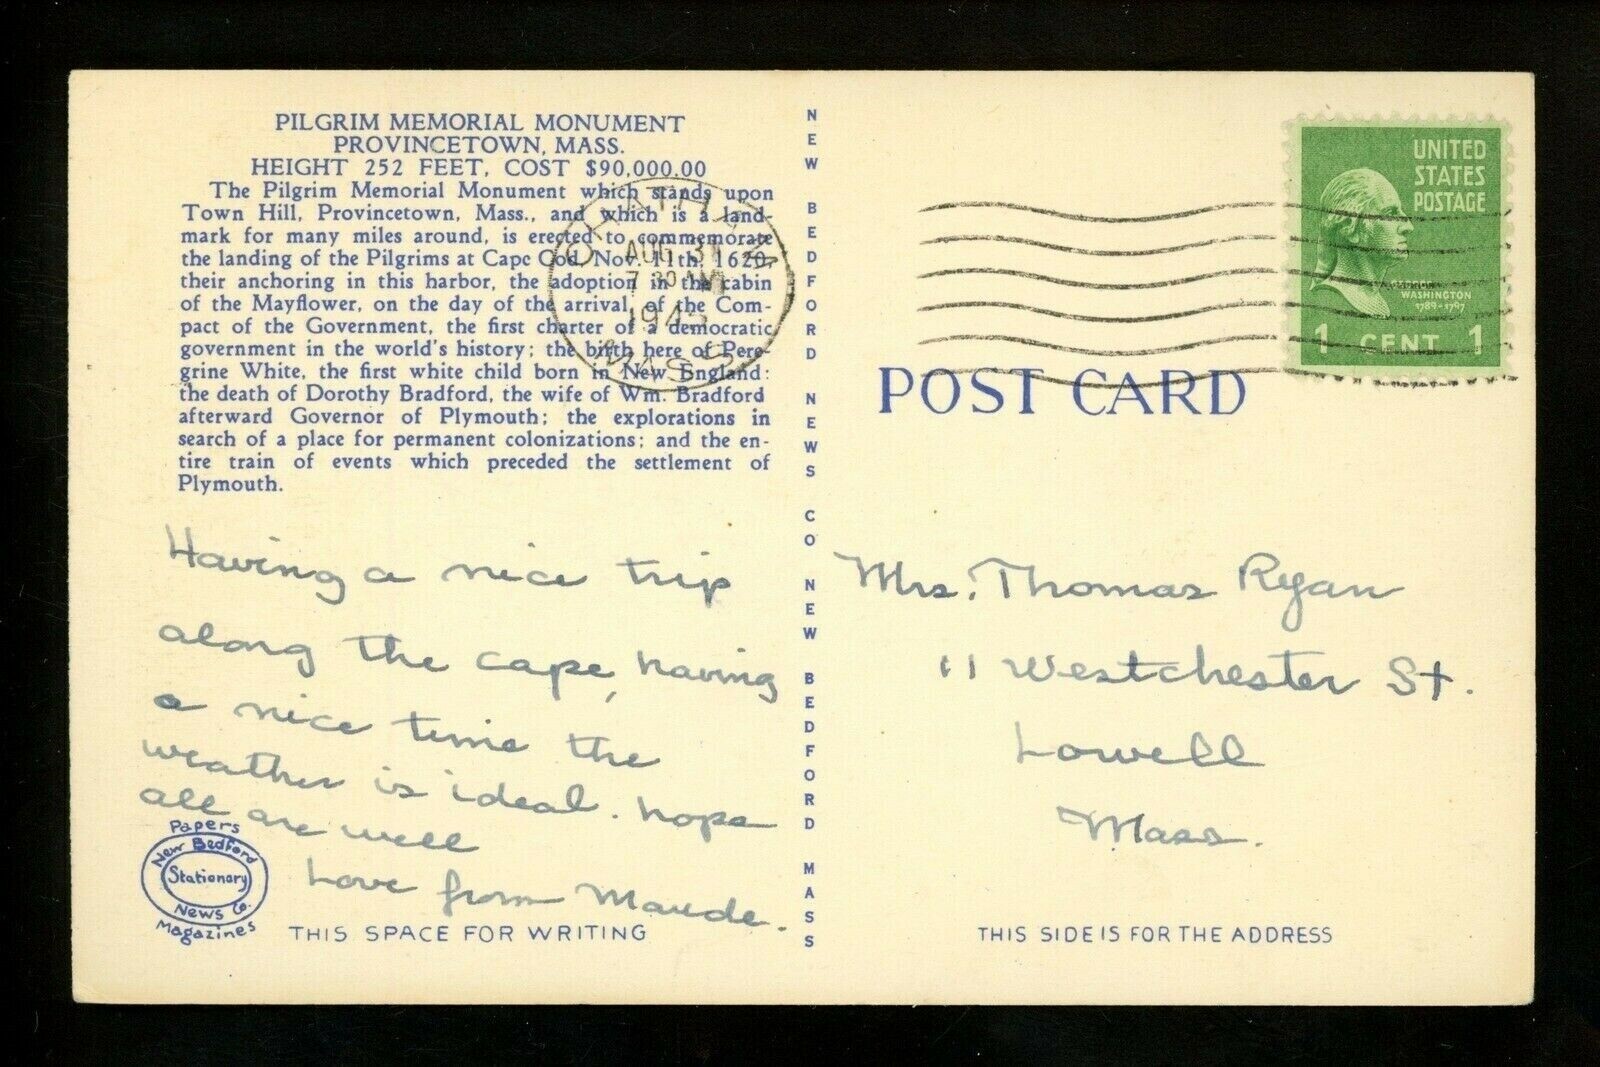 PILGRIM MEMORIAL MONUMENT
PROVINCETOWN, MASS.
HEIGHT 252 FEET, COST $90,000.00
The Pilgrim Memorial Monument which stands upon
Town Hill, Provincetown, Mass., and which is a land-
mark for many miles around, is erected to commemorate
the landing of the Pilgrims at Cape Cod, Nov. 11th, 1620,
their anchoring in this harbor, the adoption in the cabin
of the Mayflower, on the day of the arrival, of the Com-
pact of the Government, the first charter of a democratic
government in the world's history; the birth here of Pere-
grine White, the first white child born in New England:
the death of Dorothy Bradford, the wife of Wm. Bradford
afterward Governor of Plymouth; the explorations in
search of a place for permanent colonizations; and the en-
tire train of events which preceded the settlement of
Plymouth.
CHATHAM
AUG 31
7 30 AM
1945
MASS
Having a nice trip
along the cape, having
a nice time the
weather is ideal. hope
all are well
Love from Maude.
Papers
New Bedford
Stationary
News Co.
Magazines
THIS SPACE FOR WRITING
NEW BEDFORD NEWS CO NEW BEDFORD MASS
UNITED
STATES
POSTAGE
WASHINGTON
1789-1797
1 CENT 1
POST CARD
Mrs. Thomas Ryan
11 Westchester St.
Lowell
Mass.
THIS SIDE IS FOR THE ADDRESS